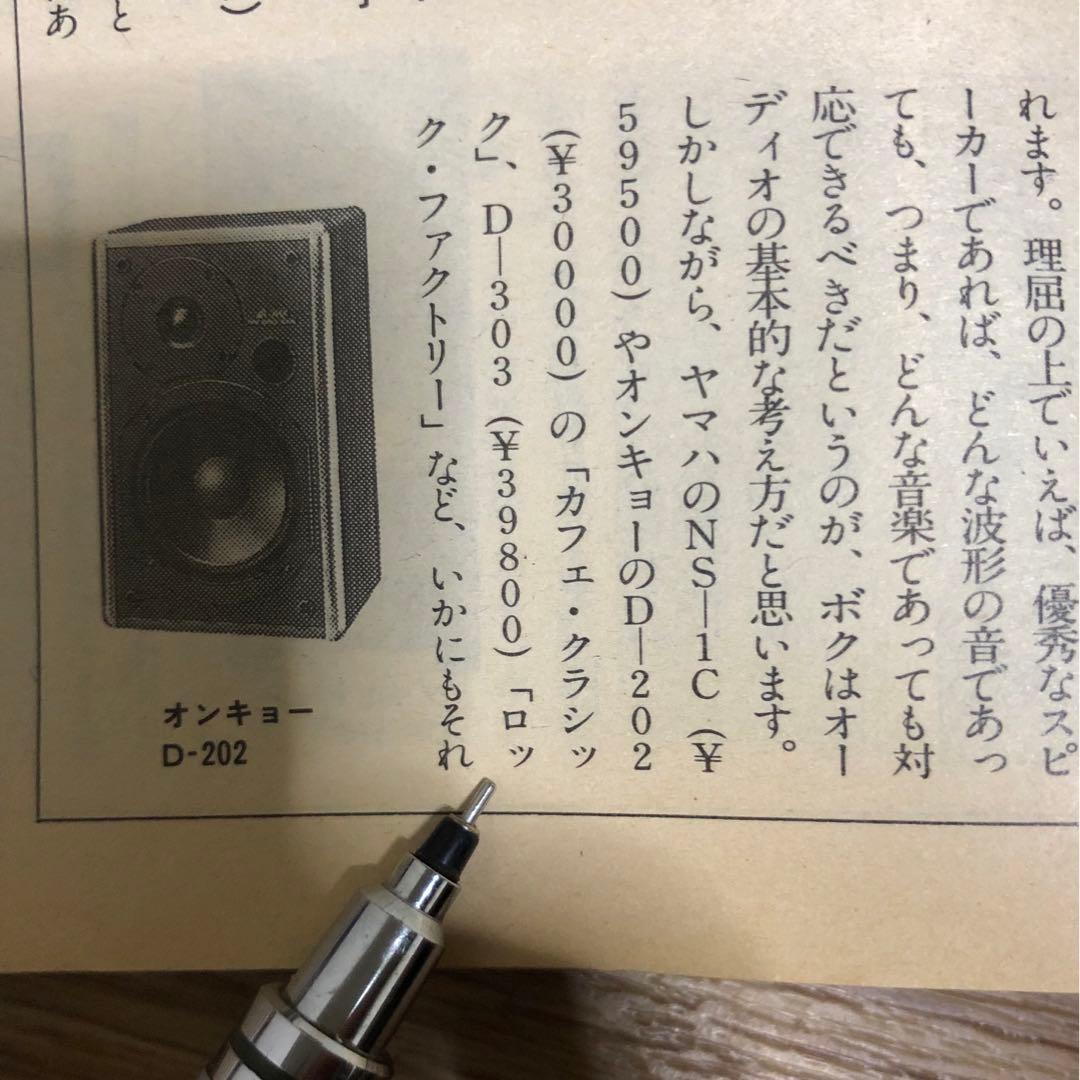 れます。理屈の上でいえば、優秀なスピ
ーカーであれば、どんな波形の音であっ
ても、つまり、どんな音楽であっても対
応できるべきだというのが、ボクはオー
ディオの基本的な考え方だと思います。
しかしながら、ヤマハのNS—1C(¥
59500)やオンキョーのD—202
(¥30000)の「カフェ・クラシッ
ク」、D—303(¥39800)「ロッ
ク・ファクトリー」など、いかにもそれ
と
あ
オンキョー
D-202